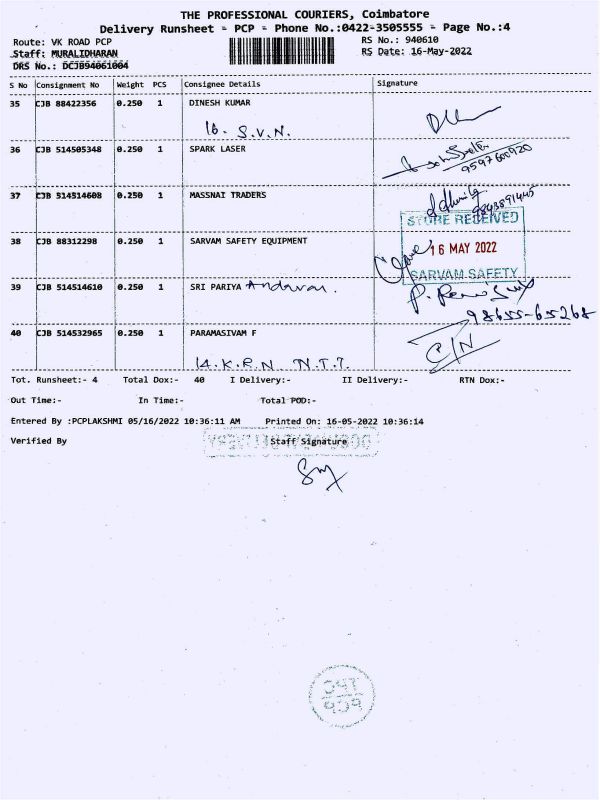 THE PROFESSIONAL COURIERS, Coimbatore
Delivery Runsheet - PCP - Phone No.:0422-3505555 - Page No.:4
Route: VK ROAD PCP
RS No.: 940610
Staff: MURALIDHARAN
RS Date: 16-May-2022
DRS No.: DCJB94061004
S No Consignment No Weight PCS Consignee Details Signature
35 CJB 88422356 0.250 1 DINESH KUMAR
16. S.V.N.
36 CJB 514505348 0.250 1 SPARK LASER
9597600920
37 CJB 514514608 0.250 1 MASSNAI TRADERS
STORE RECEIVED
38 CJB 88312298 0.250 1 SARVAM SAFETY EQUIPMENT
16 MAY 2022
SARVAM SAFETY
39 CJB 514514610 0.250 1 SRI PARIYA Andavar.
98655-65268
40 CJB 514532965 0.250 1 PARAMASIVAM F
C/N
14. K.R.N. N.T.7.
Tot. Runsheet:- 4 Total Dox:- 40 I Delivery:- II Delivery:- RTN Dox:-
Out Time:- In Time:- Total POD:-
Entered By :PCPLAKSHMI 05/16/2022 10:36:11 AM Printed On: 16-05-2022 10:36:14
Verified By Staff Signature